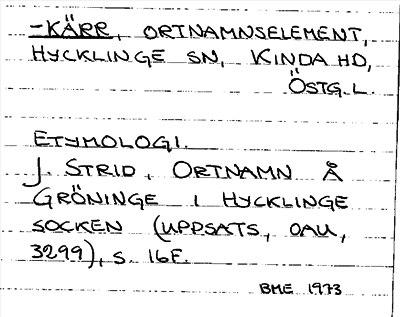 -KÄRR, ORTNAMNSELEMENT,
HYCKLINGE SN, KINDA HD,
ÖSTG.L.
ETYMOLOGI.
J. STRID, ORTNAMN Å
GRÖNINGE I HYCKLINGE
SOCKEN (UPPSATS, OAU,
3299), S. 16F.
BME 1973